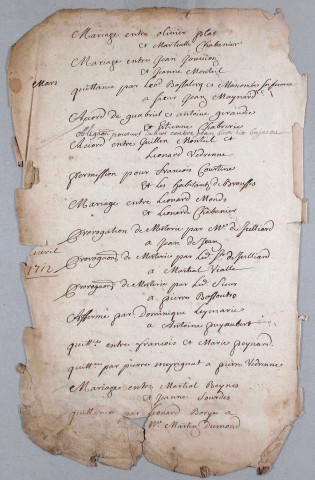 Mariage entre olivier plas
et Martialle Chabenier
Mariage entre Jean Jouvion
et Jeanne Monteil
Mars
quittance par Leod Bossalery et
a sieur Jean Maynard
Acord de quabriel et antoine geraudie
et Estienne Chabrerie
Acord entre Guillen Monteil et
Leonard Vedrenne
permission pour francois Courtine
et les habitants de
Mariage entre Leonard Monds
et Lionarde Chabenier
prorogation de Materie par Mr de Juilliard
a Jean de Jean
avril
1712
prorogaons de Materie par Led Sr de Juilliard
a Martial Vialle
prorogaons de Materie par Led Sieur
a pierre Bossoutro
Afferme par Dominique Leymarie
a Antoine puyaubert
quittce entre francois et Marie peynard
quittce par pierre meyrignat a pierre Vedrenne
Mariage entre Martial Beynes
et Jeanne Sourdes
quittance par Leonard Borye a
Mr Martin Dumond